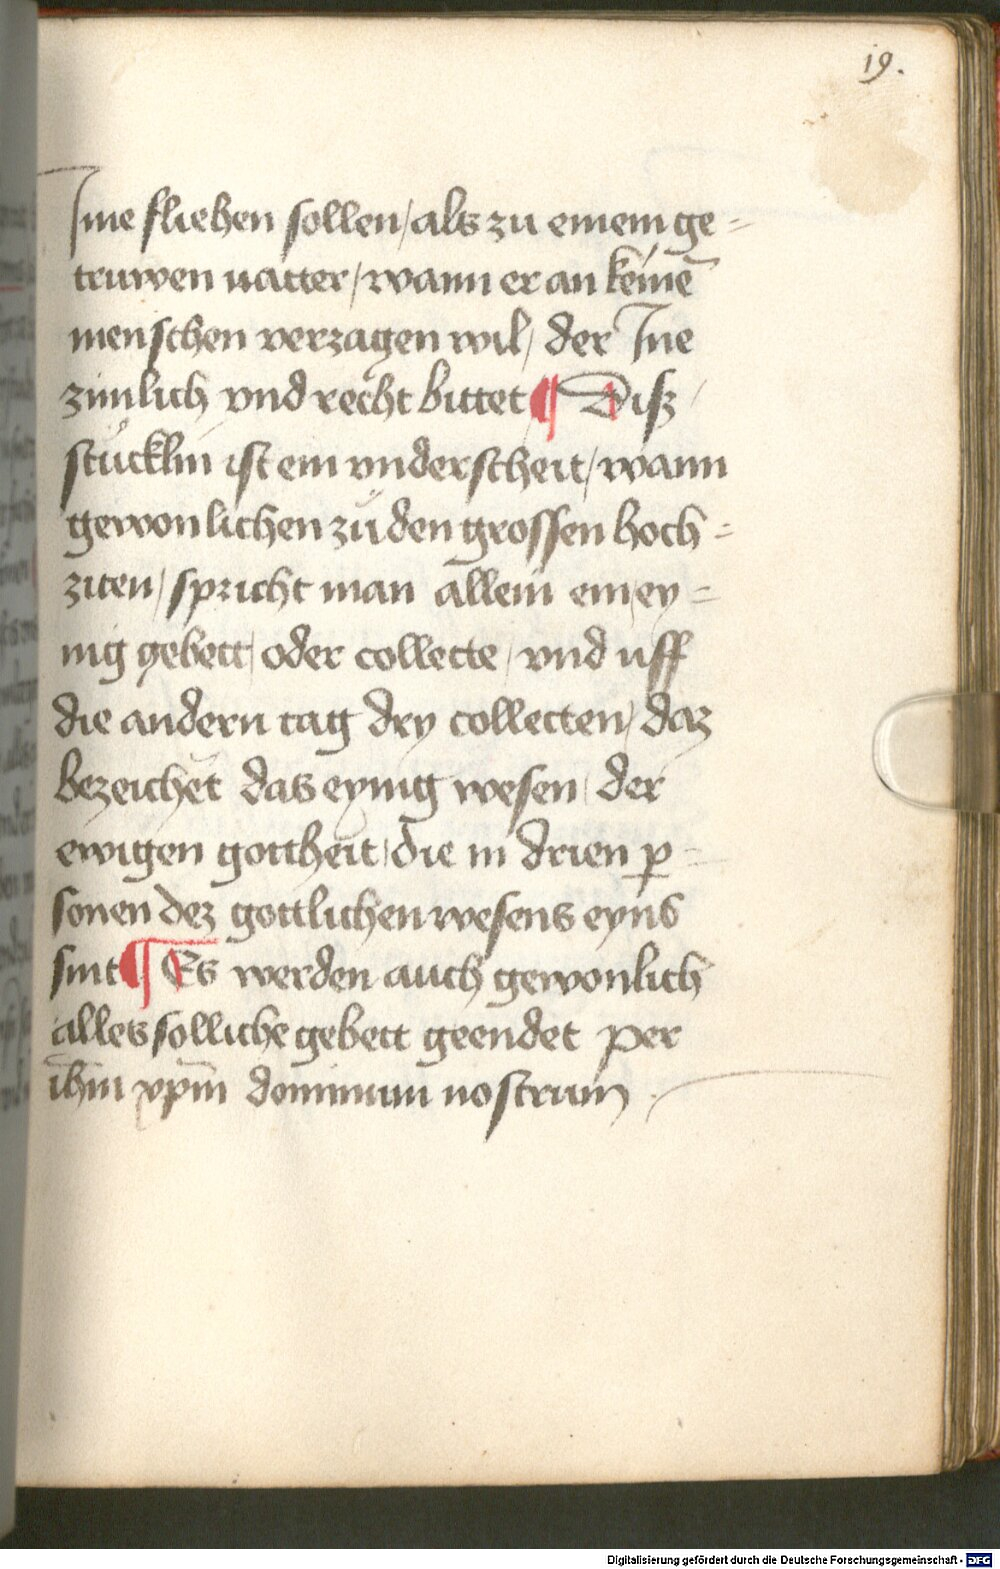 19.
Jme fliehen sollen / als zu einem ge=
truwen vatter / wann er an keinē
menschen verzagen wil / der Jne
zimlich vnd recht bittet ¶ Disz /
stucklin ist ein vnderscheit / wann
gewonlichen zů den grossen hoch=
ziten / spricht man allein ein ey=
nig gebett / oder collecte / vnd uff
die andern tag dry collecten / daz
bezeichēt das eynig wesen / der
ewigen gottheit / die in drien ꝑ=
sonen dez gottlichen wesens eyns
sint ¶ Es werden auch gewonlich
alles solliche gebett geendet per
ihm̄ xpm̄ dominum nostrum .
Digitalisierung gefördert durch die Deutsche Forschungsgemeinschaft - DFG